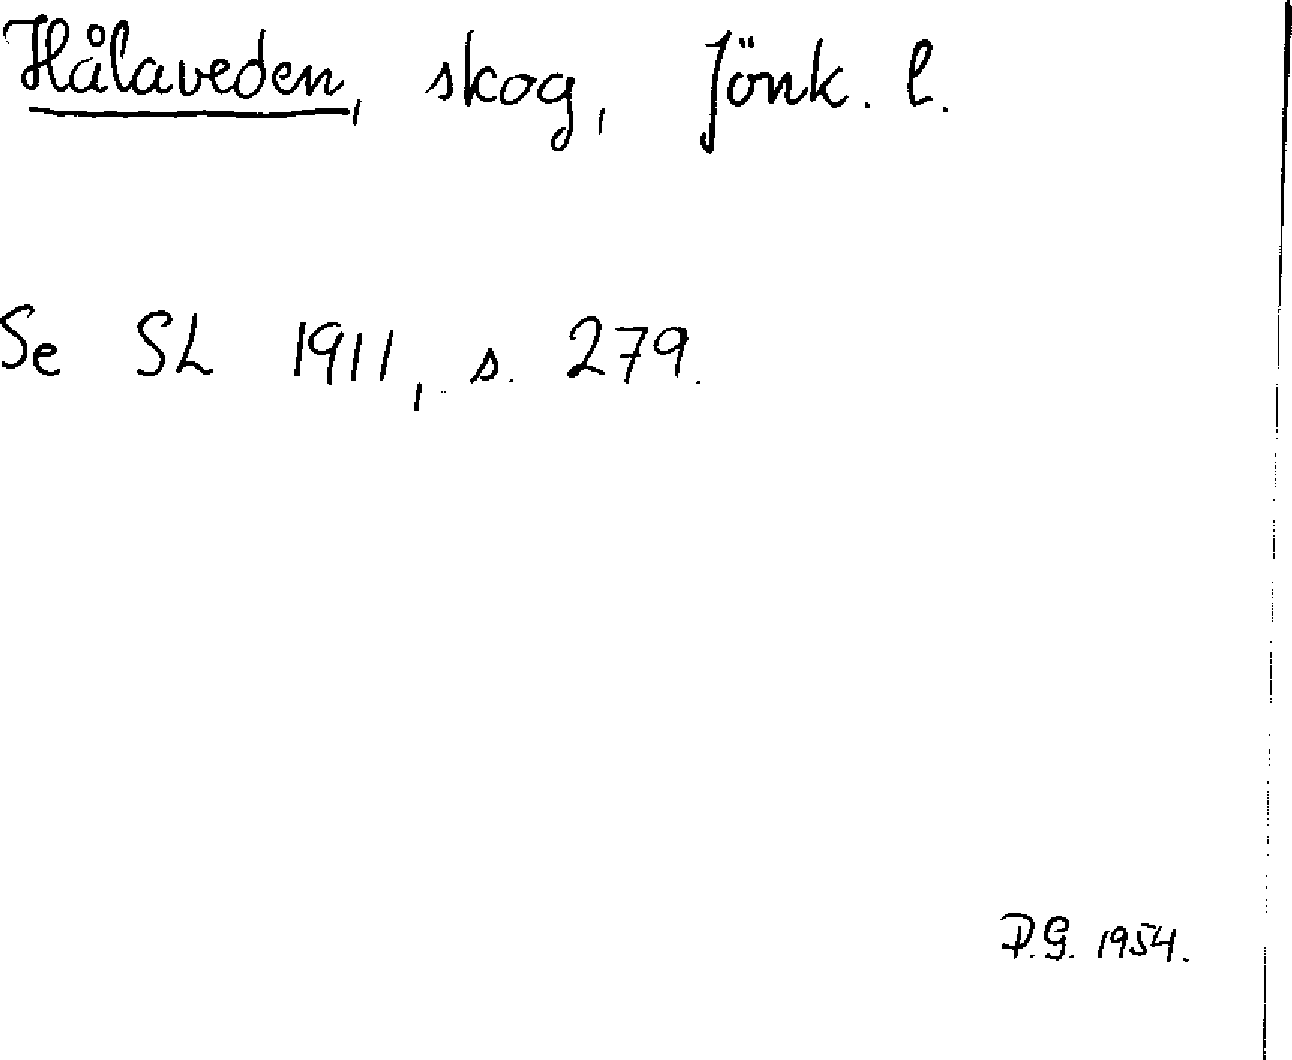 Hålaveden, skog, Jönk. l.
Se SL 1911, s. 279.
P.G. 1954.